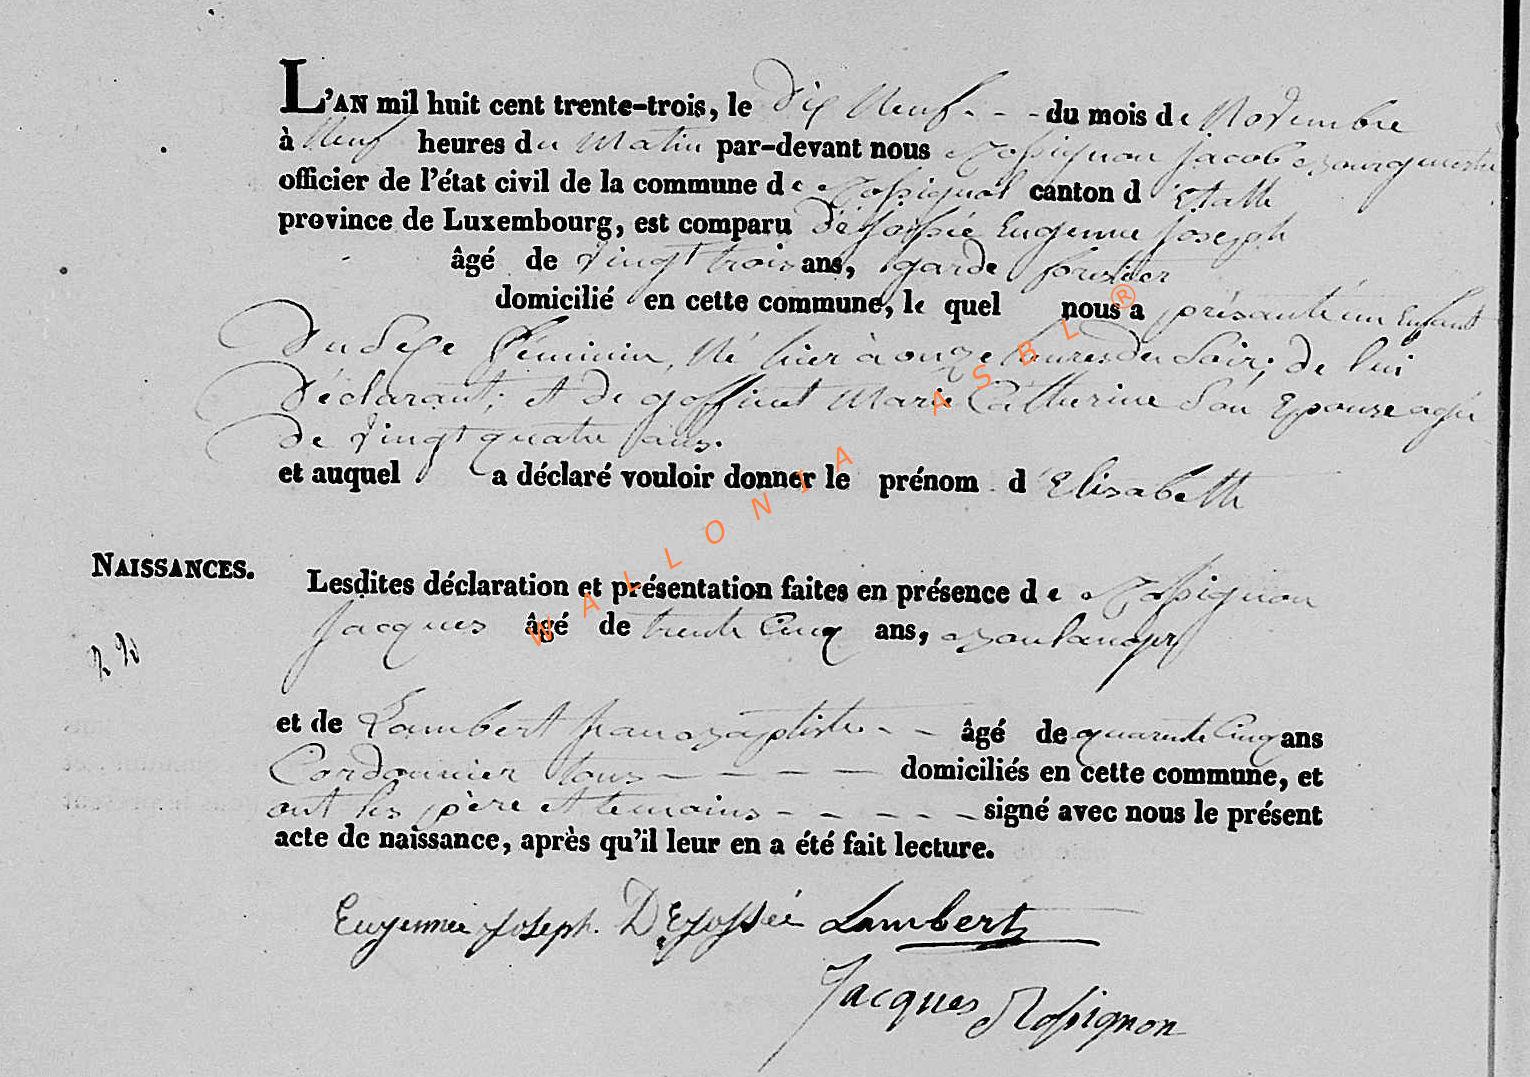 L'AN mil huit cent trente-trois, le dix Neuf - - - du mois de Novembre
à Neuf heures du Matin par-devant nous Rossignon Jacob Bourguemestre
officier de l'état civil de la commune de Rossignol canton d'Etalle
province de Luxembourg, est comparu Eugenne Joseph
âgé de vingt trois ans, garde forestier
domicilié en cette commune, le quel nous a présanté un Enfant
du Sexe féminin, Né hier à onze heures du Soir; de lui
Déclarant; et de goffinet Marie Catherine Son Epouse agée
de vingt quatre ans.
et auquel a déclaré vouloir donner le prénom d'Elisabette
NAISSANCES.
Lesdites déclaration et présentation faites en présence de Rossignon
Jacques âgé de trente Cinq ans, Boulanger
et de Lambert Jean Baptiste - - âgé de quarente Cinq ans
Cordonnier tous - - - - domiciliés en cette commune, et
ont les père et temoins - - - - - signé avec nous le présent
acte de naissance, après qu'il leur en a été fait lecture.
Eugenne Joseph. Lambert
Jacques Rossignon
WALLONIA ASBL ®